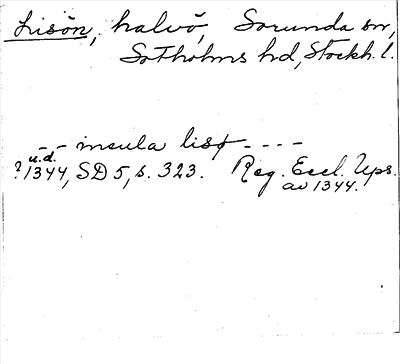 Lisön, halvö, Sorunda sn,
Sotholms hd, Stockh. l.
- - insula lisø - - - -
u.d.
? 1344, SD 5, s. 323. Reg. Eccl. Ups.
av 1344.